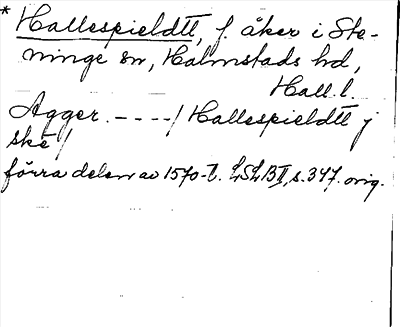 * Hallespieldtt, f. åker i Ste-
ninge sn, Halmstads hd,
Hall. l.
Agger. ----/ Hallespieldtt j
ske/
förra delen av 1570-t. LSLBII, s. 347. orig.